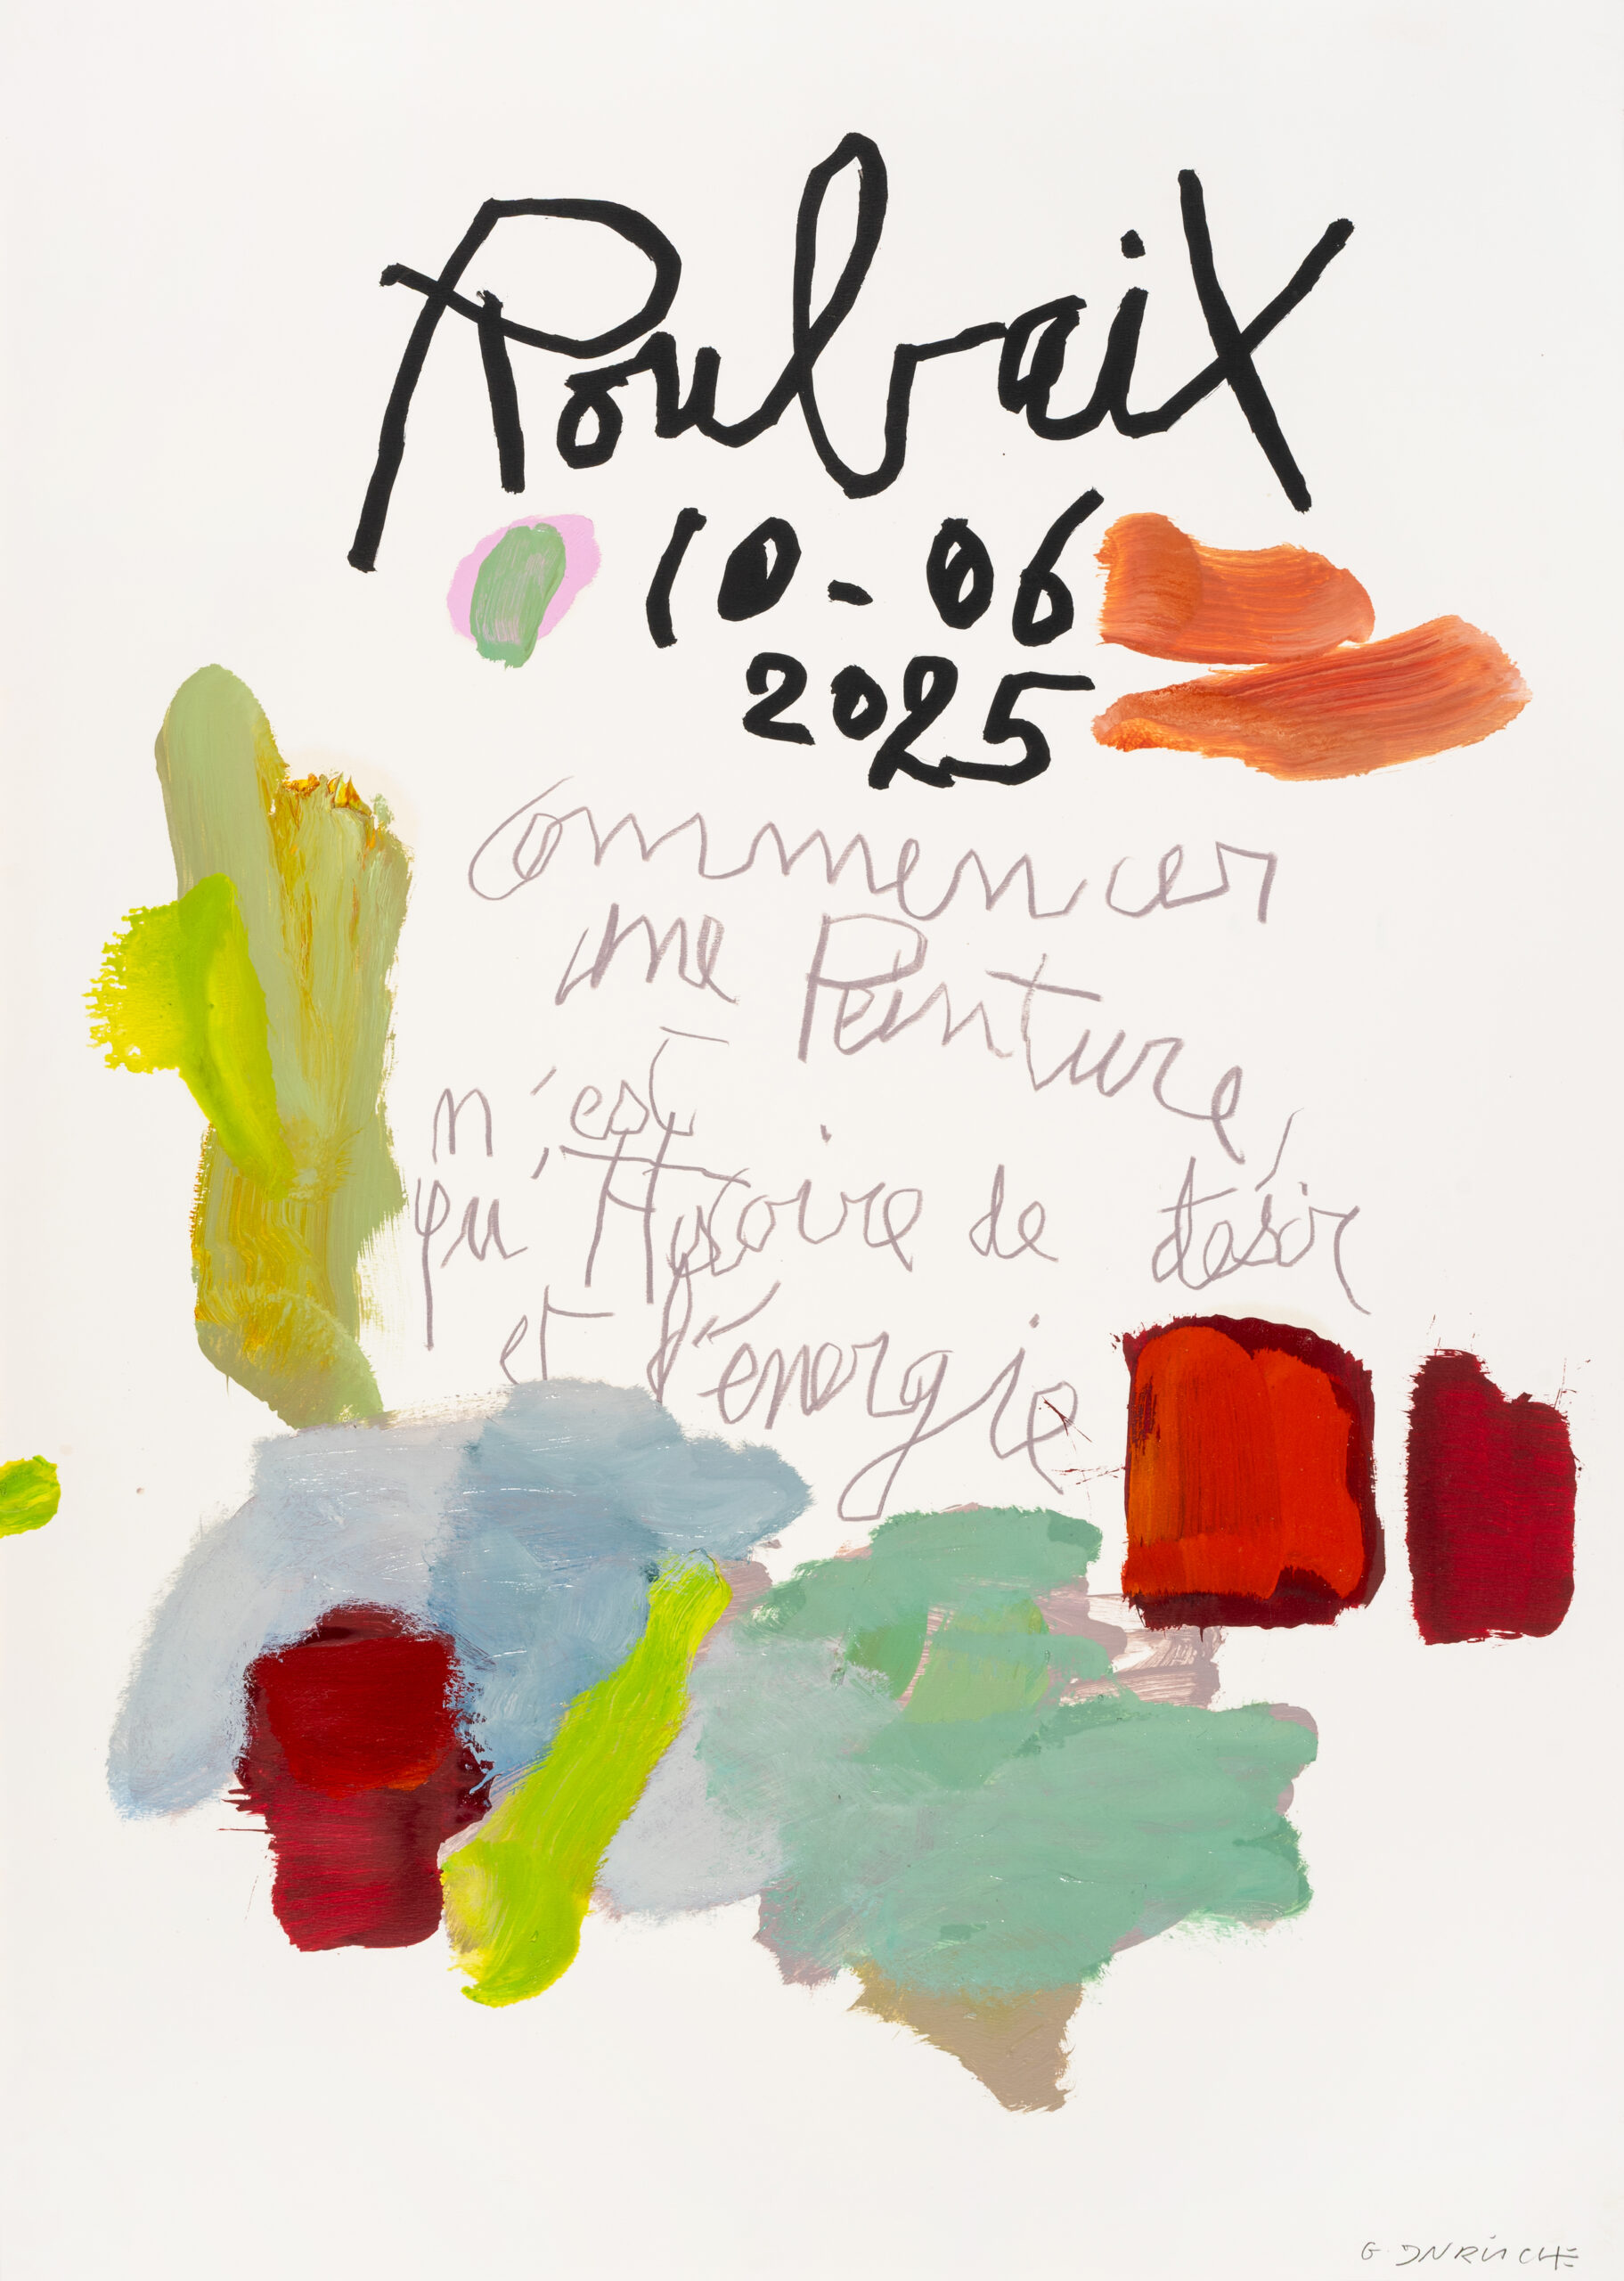 Roubaix
10-06
2025
Commencer
une Peinture,
n'est
qu'Histoire de désir
et d'énergie